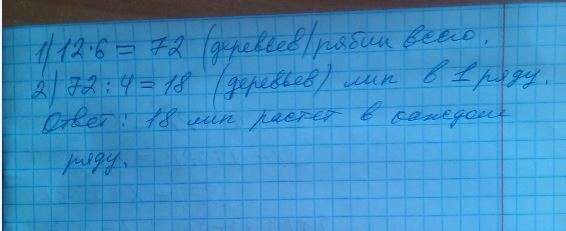 1) 12·6 = 72 (деревьев) рябин всего.
2) 72 : 4 = 18 (деревьев) лип в 1 ряду.
Ответ: 18 лип растет в каждом
ряду.